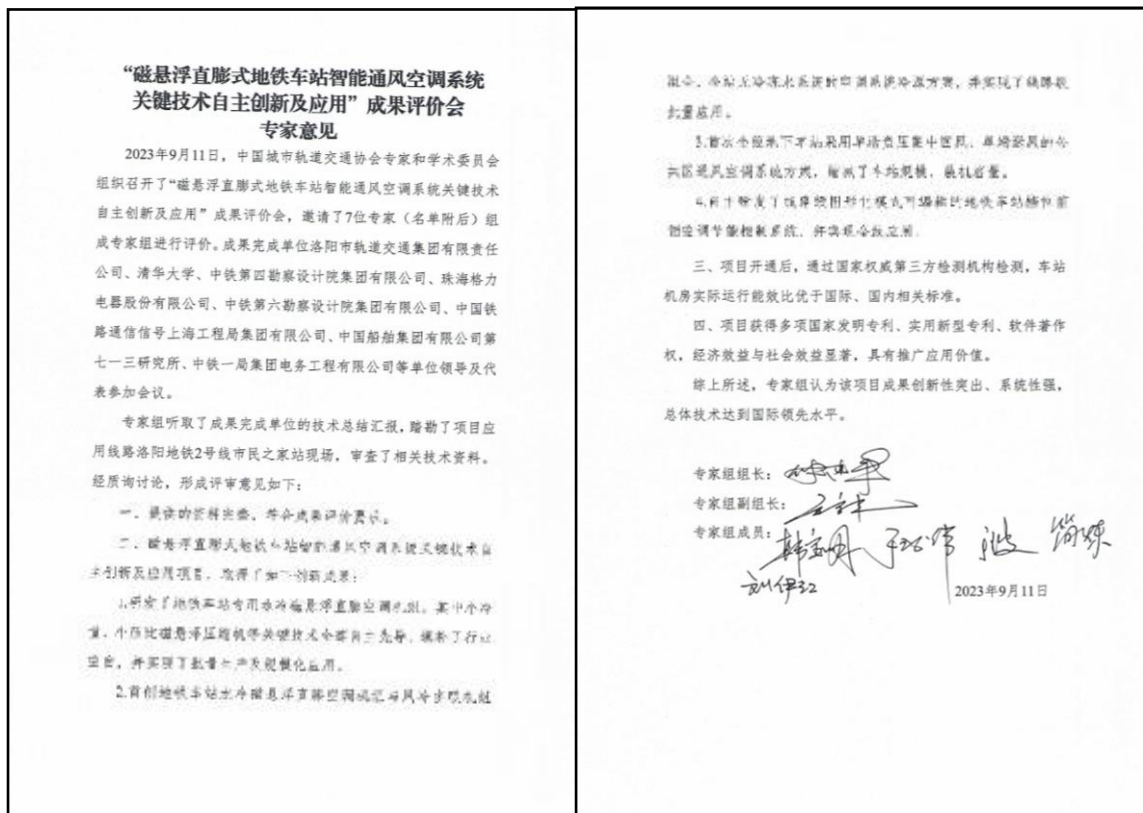 “磁悬浮直膨式地铁车站智能通风空调系统
关键技术自主创新及应用”成果评价会
专家意见
2023年9月11日，中国城市轨道交通协会专家和学术委员会
组织召开了“磁悬浮直膨式地铁车站智能通风空调系统关键技术
自主创新及应用”成果评价会，邀请了7位专家（名单附后）组
成专家组进行评价。成果完成单位洛阳市轨道交通集团有限责任
公司、清华大学、中铁第四勘察设计院集团有限公司、珠海格力
电器股份有限公司、中铁第六勘察设计院集团有限公司、中国铁
路通信信号上海工程局集团有限公司、中国船舶集团有限公司第
七一三研究所、中铁一局集团电务工程有限公司等单位领导及代
表参加会议。
专家组听取了成果完成单位的技术总结汇报，踏勘了项目应
用线路洛阳地铁2号线市民之家站现场，审查了相关技术资料。
经质询讨论，形成评审意见如下：
一、提供的资料完整，符合成果评价要求。
二、磁悬浮直膨式地铁车站智能通风空调系统关键技术自
主创新及应用项目，取得了如下创新成果：
1.研发了地铁车站专用水冷磁悬浮直膨空调机组，其中小冷
量、小压比磁悬浮压缩机等关键技术全部自主，填补了行业
空白，并实现了批量生产及规模化应用。
2.首创地铁车站水冷磁悬浮直膨空调机组与风冷多联机组
组合、全站无冷冻水系统的空调系统冷源方案，并实现了线路级
批量应用。
3.首次全线地下车站采用单端集中回风、单端送风的公
共区通风空调系统方案，缩减了车站规模、装机容量。
4.模式可编辑的地铁车站
空调节能控制系统，并实现全线应用。
三、项目开通后，通过国家权威第三方检测机构检测，车站
机房实际运行能效比优于国际、国内相关标准。
四、项目获得多项国家发明专利、实用新型专利、软件著作
权，经济效益与社会效益显著，具有推广应用价值。
综上所述，专家组认为该项目成果创新性突出、系统性强，
总体技术达到国际领先水平。
专家组组长：
专家组副组长：
专家组成员：
刘伊江
2023年9月11日